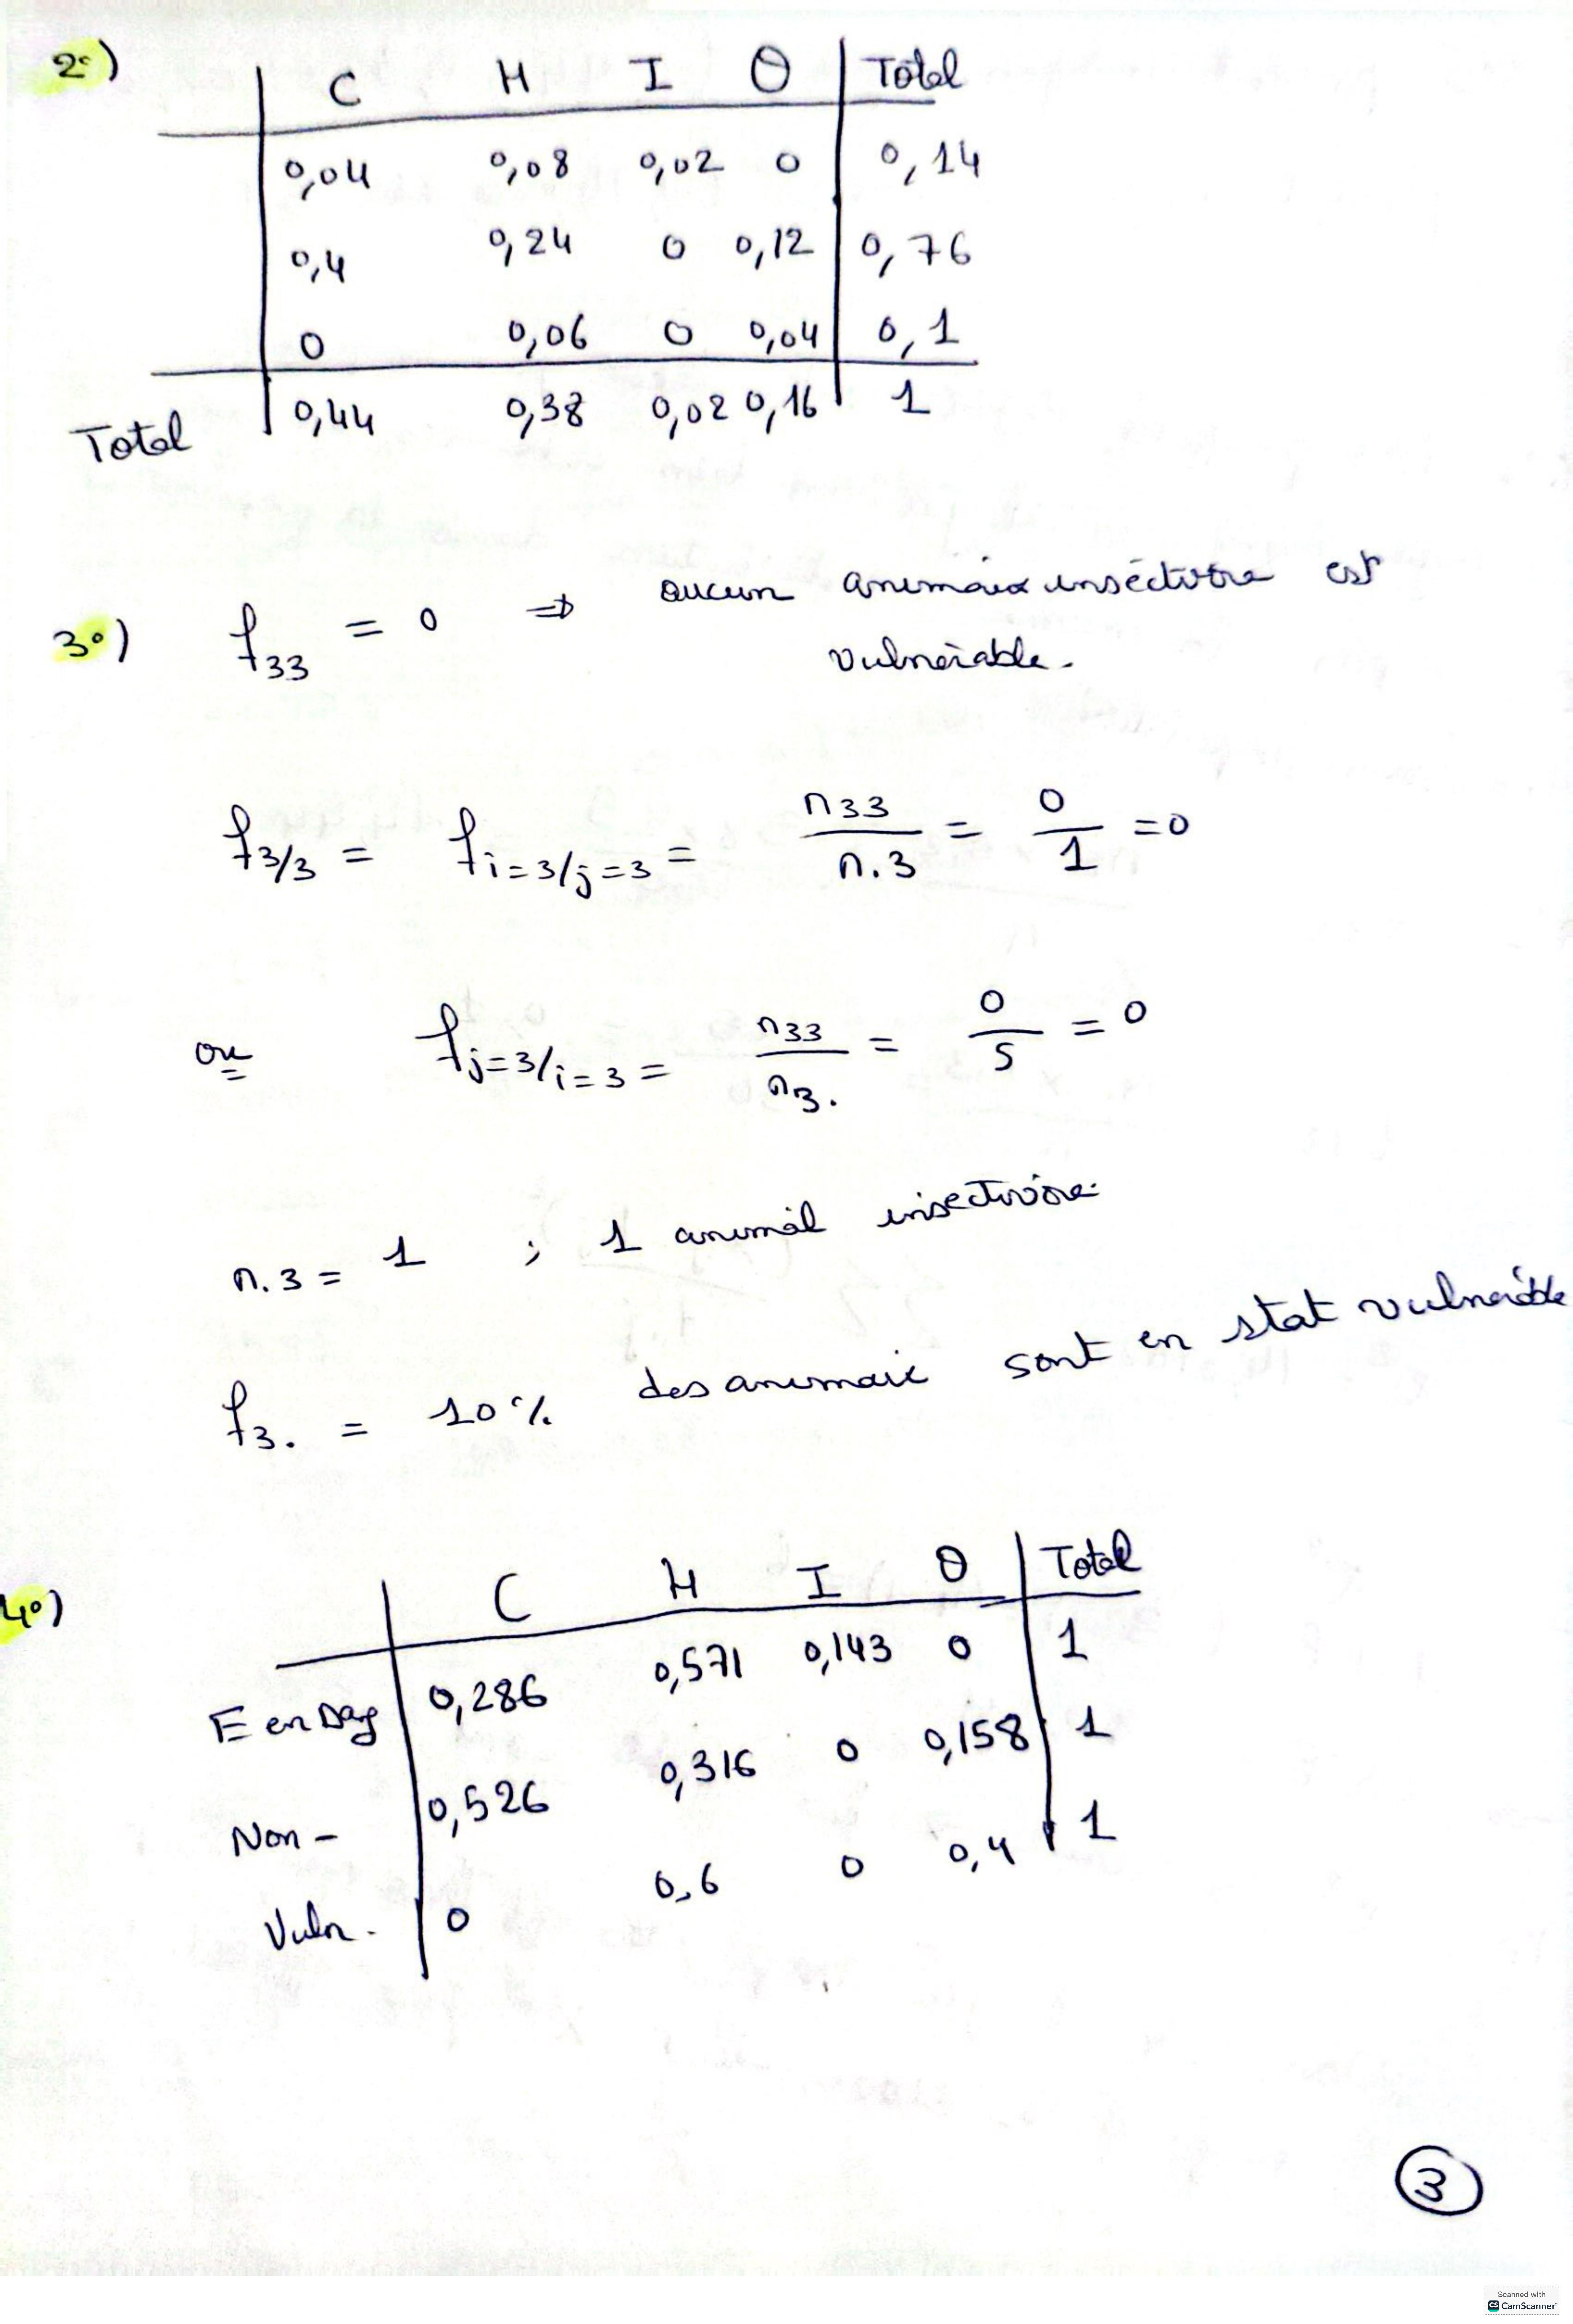 2°)
C H I O Total
0,04 0,08 0,02 0 0,14
0,4 0,24 0 0,12 0,76
0 0,06 0 0,04 0,1
Total 0,44 0,38 0,02 0,16 1
3°) f33 = 0 ⇒ aucun animaux inséctivore est
vulnérable.
f3/3 = fi=3/j=3 = n33/n.3 = 0/1 = 0
ou fj=3/i=3 = n33/n3. = 0/5 = 0
n.3 = 1 ; 1 animal insectivore
f3. = 10% des animaux sont en stat vulnérable
4°) C H I O Total
E en Dag 0,286 0,571 0,143 0 1
Non - 0,526 0,316 0 0,158 1
Vuln. 0 0,6 0 0,4 1
3
Scanned with
CS CamScanner